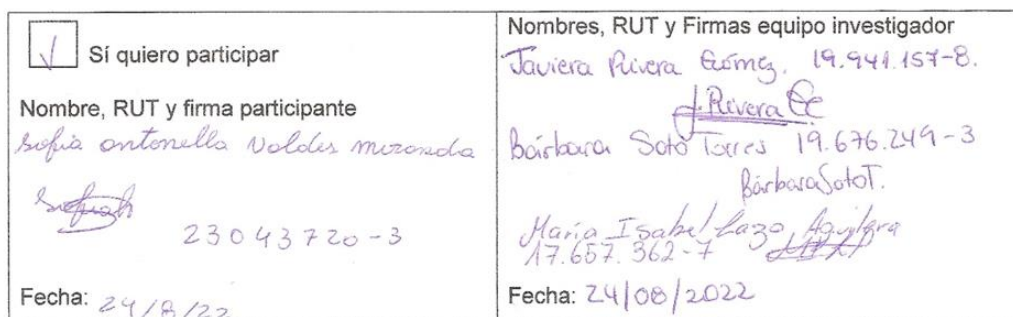 Sí quiero participar
Nombre, RUT y firma participante
Sofia antonella Valdes miranda
23043720-3
Fecha: 24/8/22
Nombres, RUT y Firmas equipo investigador
Javiera Rivera Gómez. 19.941.157-8.
J Rivera
Bárbara Soto Torres 19.676.249-3
BárbaraSotoT.
María Isabel Lazo Aguilera
17.657.362-7
Fecha: 24/08/2022